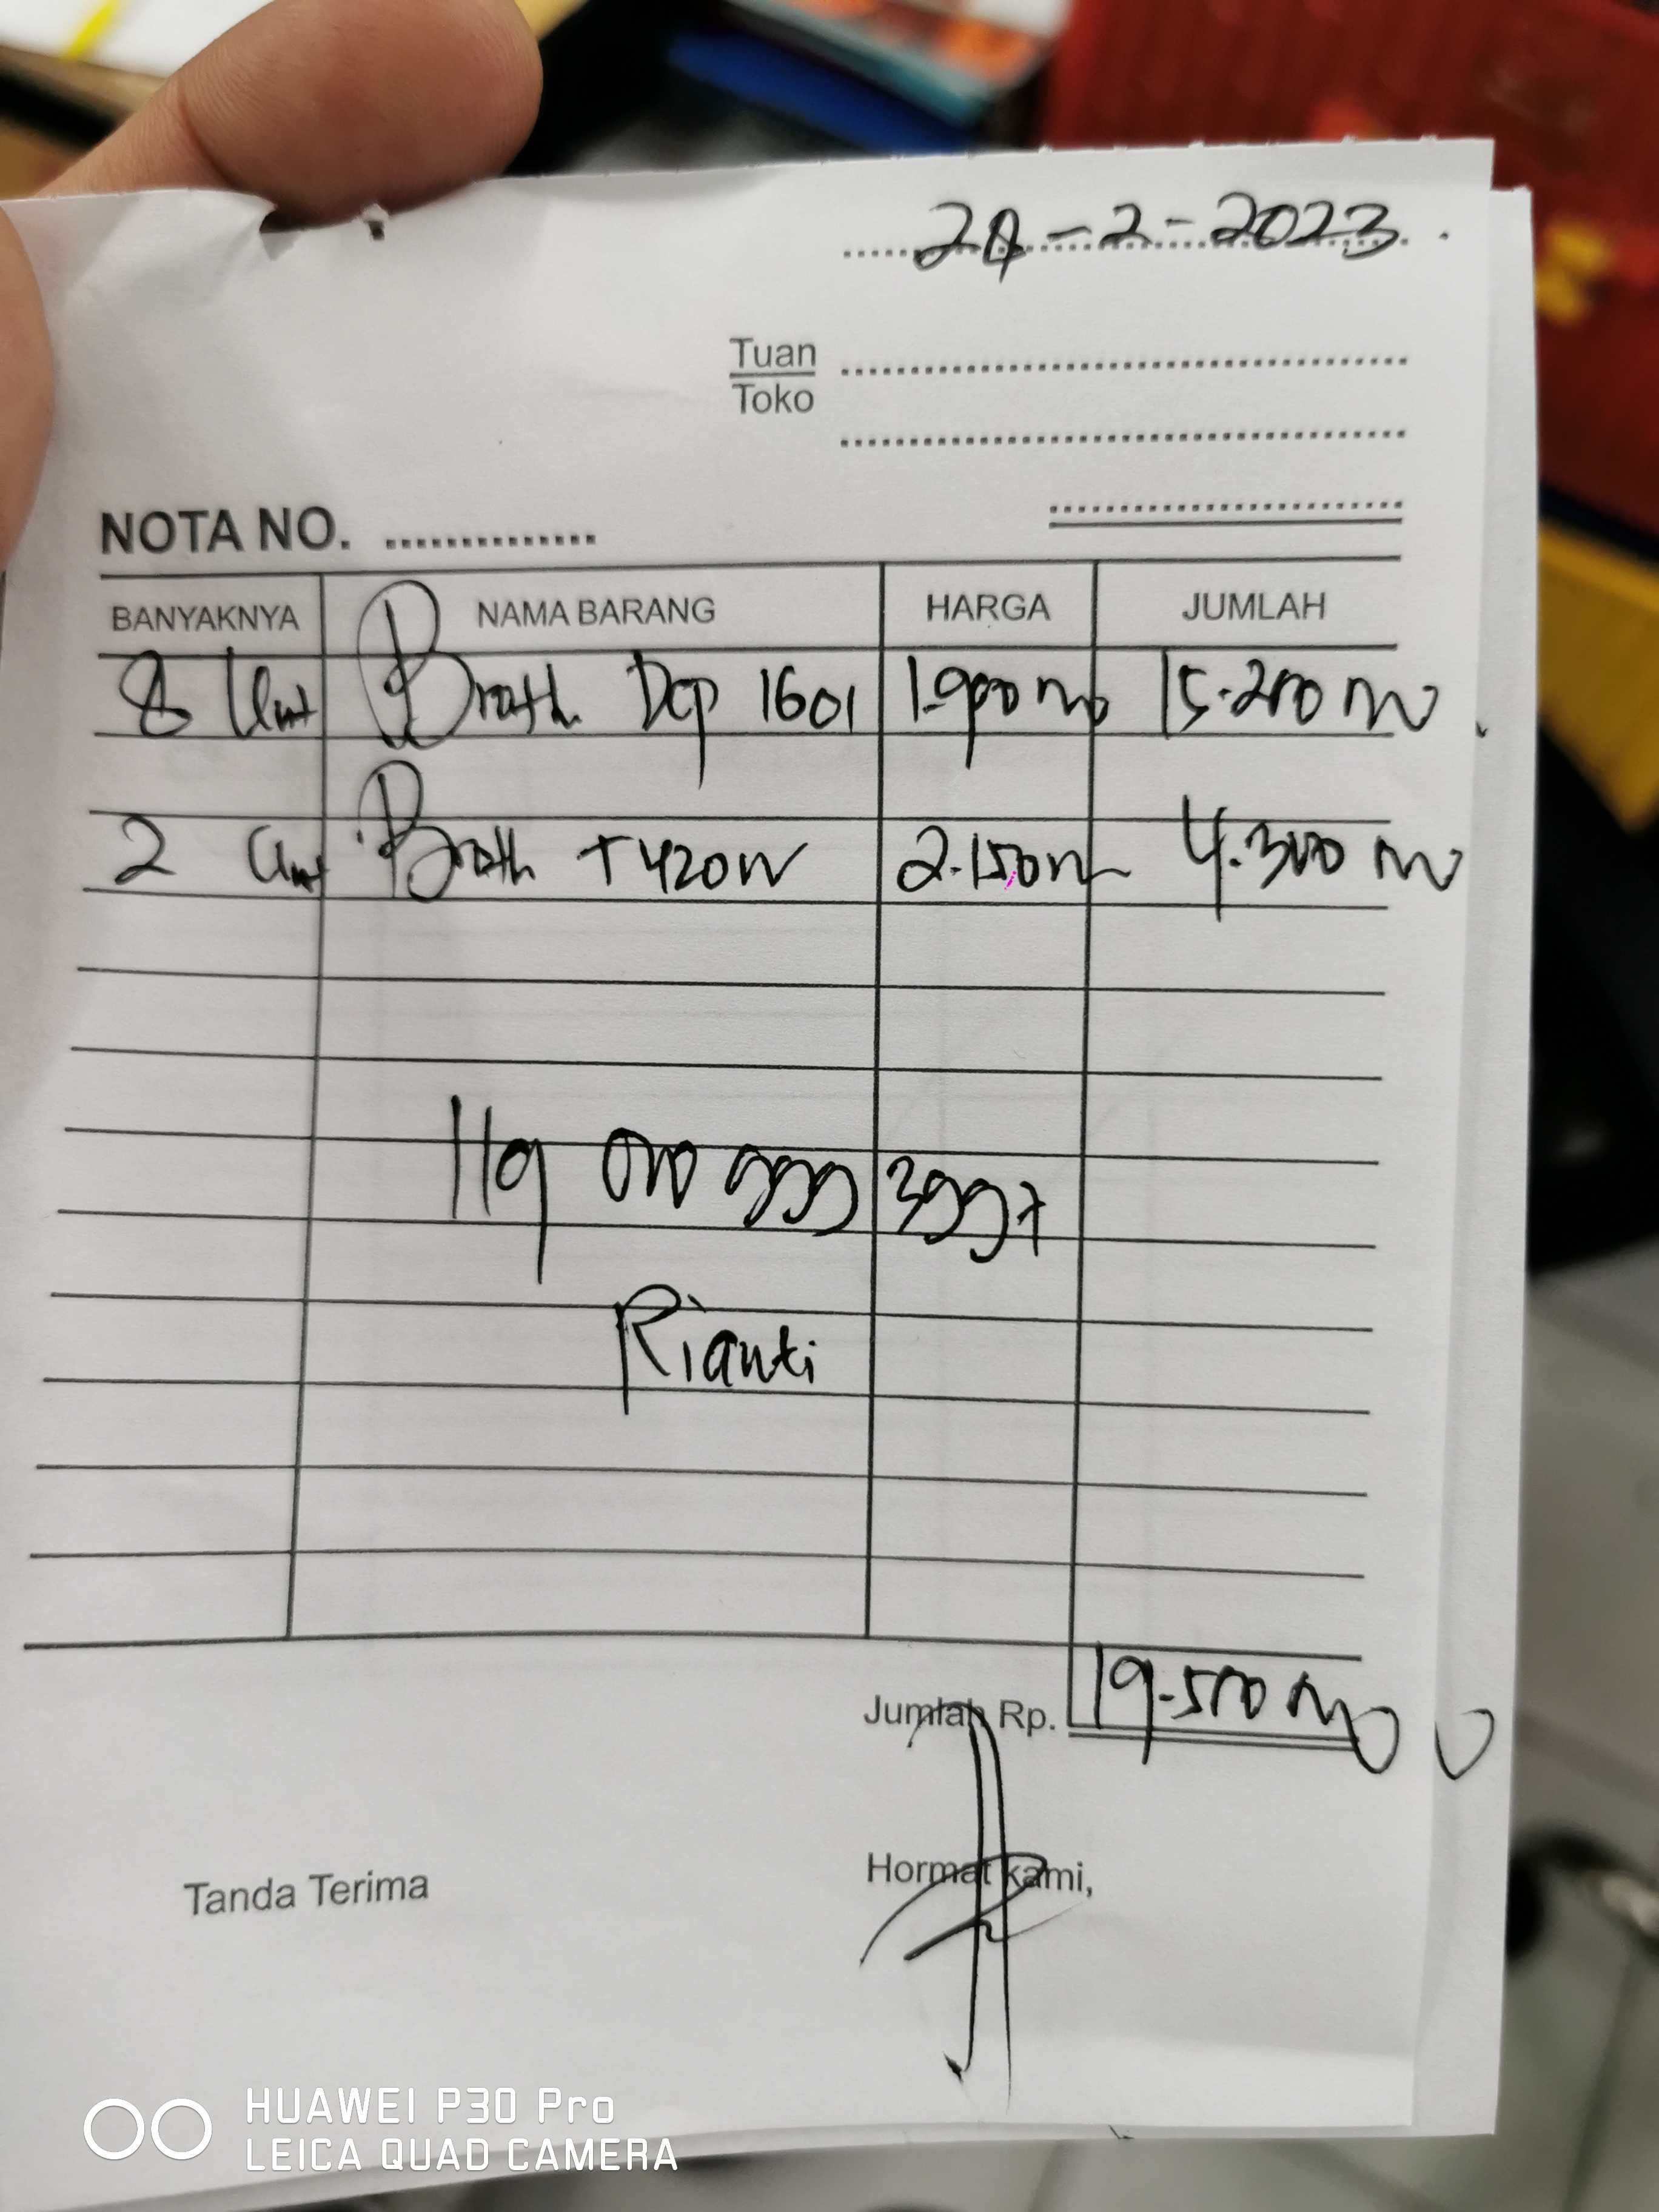 24-2-2023.
Tuan
Toko
NOTA NO.
BANYAKNYA NAMA BARANG HARGA JUMLAH
8 Unit Broth Dcp 1601 1.900 15.200
2 Unit Broth T420W 2.150 4.300
Rianti
Jumlah Rp. 19.500
Tanda Terima Hormat kami,
HUAWEI P30 Pro
LEICA QUAD CAMERA